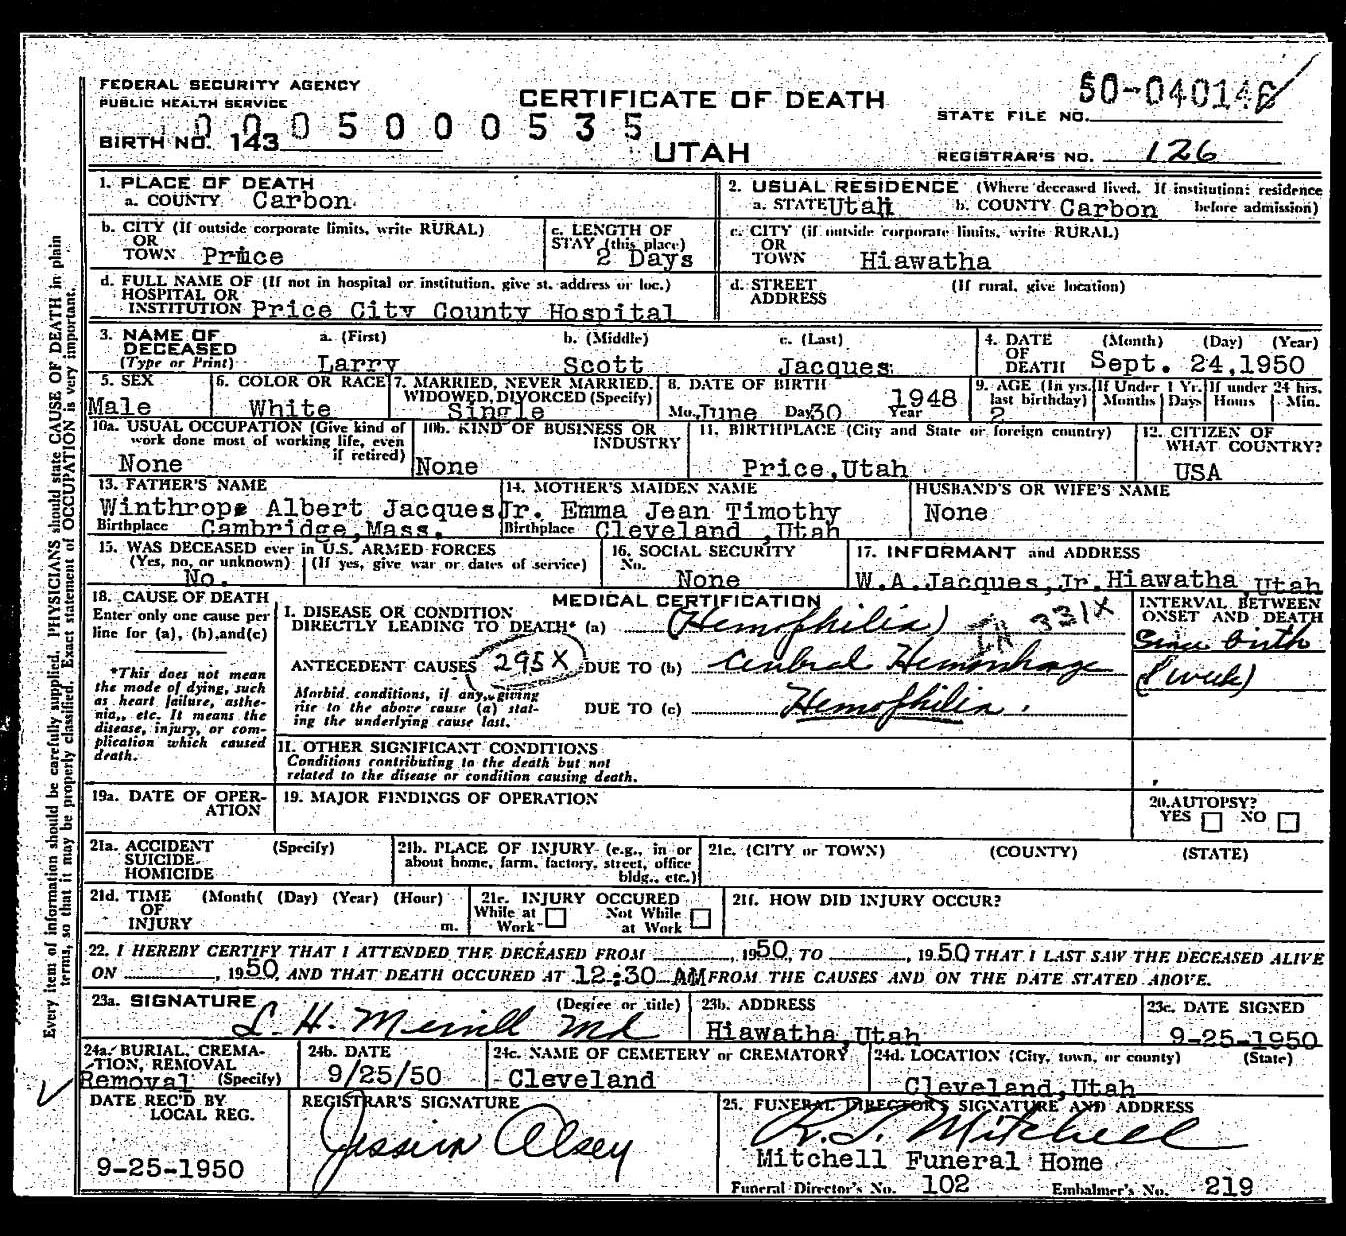 FEDERAL SECURITY AGENCY
PUBLIC HEALTH SERVICE
CERTIFICATE OF DEATH
50-040146
STATE FILE NO.
0005000535
BIRTH NO. 143
UTAH
REGISTRAR'S NO. 126
1. PLACE OF DEATH
a. COUNTY Carbon
2. USUAL RESIDENCE (Where deceased lived. If institution: residence
a. STATE Utah b. COUNTY Carbon before admission)
b. CITY (If outside corporate limits, write RURAL)
OR
TOWN Price
c. LENGTH OF
STAY (this place)
2 Days
c. CITY (if outside corporate limits, write RURAL)
OR
TOWN Hiawatha
d. FULL NAME OF (If not in hospital or institution, give st. address or loc.)
HOSPITAL OR
INSTITUTION Price City County Hospital
d. STREET (If rural, give location)
ADDRESS
3. NAME OF a. (First) b. (Middle) c. (Last)
DECEASED
(Type or Print) Larry Scott Jacques
4. DATE (Month) (Day) (Year)
OF
DEATH Sept. 24,1950
5. SEX
Male
6. COLOR OR RACE
White
7. MARRIED, NEVER MARRIED,
WIDOWED, DIVORCED (Specify)
Single
8. DATE OF BIRTH 1948
Mo. June Day 30 Year
9. AGE (In yrs. If Under 1 Yr. If under 24 hrs.
last birthday) Months Days Hours Min.
2
10a. USUAL OCCUPATION (Give kind of
work done most of working life, even
if retired)
None
10b. KIND OF BUSINESS OR
INDUSTRY
None
11. BIRTHPLACE (City and State or foreign country)
Price,Utah
12. CITIZEN OF
WHAT COUNTRY?
USA
13. FATHER'S NAME
Winthrop Albert Jacques Jr.
Birthplace Cambridge,Mass.
14. MOTHER'S MAIDEN NAME
Emma Jean Timothy
Birthplace Cleveland ,Utah
HUSBAND'S OR WIFE'S NAME
None
15. WAS DECEASED ever in U.S. ARMED FORCES
(Yes, no, or unknown) (If yes, give war or dates of service)
No.
16. SOCIAL SECURITY
No.
None
17. INFORMANT and ADDRESS
W.A.Jacques,Jr.Hiawatha,Utah
18. CAUSE OF DEATH
Enter only one cause per
line for (a), (b),and(c)
*This does not mean
the mode of dying, such
as heart failure, asthe-
nia,, etc. It means the
disease, injury, or com-
plication which caused
death.
MEDICAL CERTIFICATION
I. DISEASE OR CONDITION
DIRECTLY LEADING TO DEATH* (a) (Hemophilia) 331X
ANTECEDENT CAUSES 295X DUE TO (b) Cerebral Hemorrhage
Morbid conditions, if any, giving
rise to the above cause (a) stat-
ing the underlying cause last.
DUE TO (c) Hemophilia.
INTERVAL BETWEEN
ONSET AND DEATH
Since birth
(1 week)
II. OTHER SIGNIFICANT CONDITIONS
Conditions contributing to the death but not
related to the disease or condition causing death.
19a. DATE OF OPER-
ATION
19. MAJOR FINDINGS OF OPERATION
20.AUTOPSY?
YES NO
21a. ACCIDENT (Specify)
SUICIDE
HOMICIDE
21b. PLACE OF INJURY (e.g., in or
about home, farm, factory, street, office
bldg., etc.)
21c. (CITY or TOWN) (COUNTY) (STATE)
21d. TIME (Month( (Day) (Year) (Hour)
OF
INJURY m.
21e. INJURY OCCURED
While at Work Not While at Work
21f. HOW DID INJURY OCCUR?
22. I HEREBY CERTIFY THAT I ATTENDED THE DECEASED FROM , 1950, TO , 1950 THAT I LAST SAW THE DECEASED ALIVE
ON , 1950 AND THAT DEATH OCCURED AT 12:30 AM FROM THE CAUSES AND ON THE DATE STATED ABOVE.
23a. SIGNATURE (Degree or title)
L. H. Merrill Md
23b. ADDRESS
Hiawatha,Utah
23c. DATE SIGNED
9-25-1950
24a. BURIAL, CREMA-
TION, REMOVAL
Removal (Specify)
24b. DATE
9/25/50
24c. NAME OF CEMETERY or CREMATORY
Cleveland
24d. LOCATION (City, town, or county) (State)
Cleveland,Utah
DATE REC'D BY
LOCAL REG.
9-25-1950
REGISTRAR'S SIGNATURE
25. FUNERAL DIRECTOR'S SIGNATURE AND ADDRESS
Mitchell
Mitchell Funeral Home
Funeral Director's No. 102 Embalmer's No. 219
Every item of information should be carefully supplied. PHYSICIANS should state CAUSE OF DEATH in plain
terms, so that it may be properly classified. Exact statement of OCCUPATION is very important.